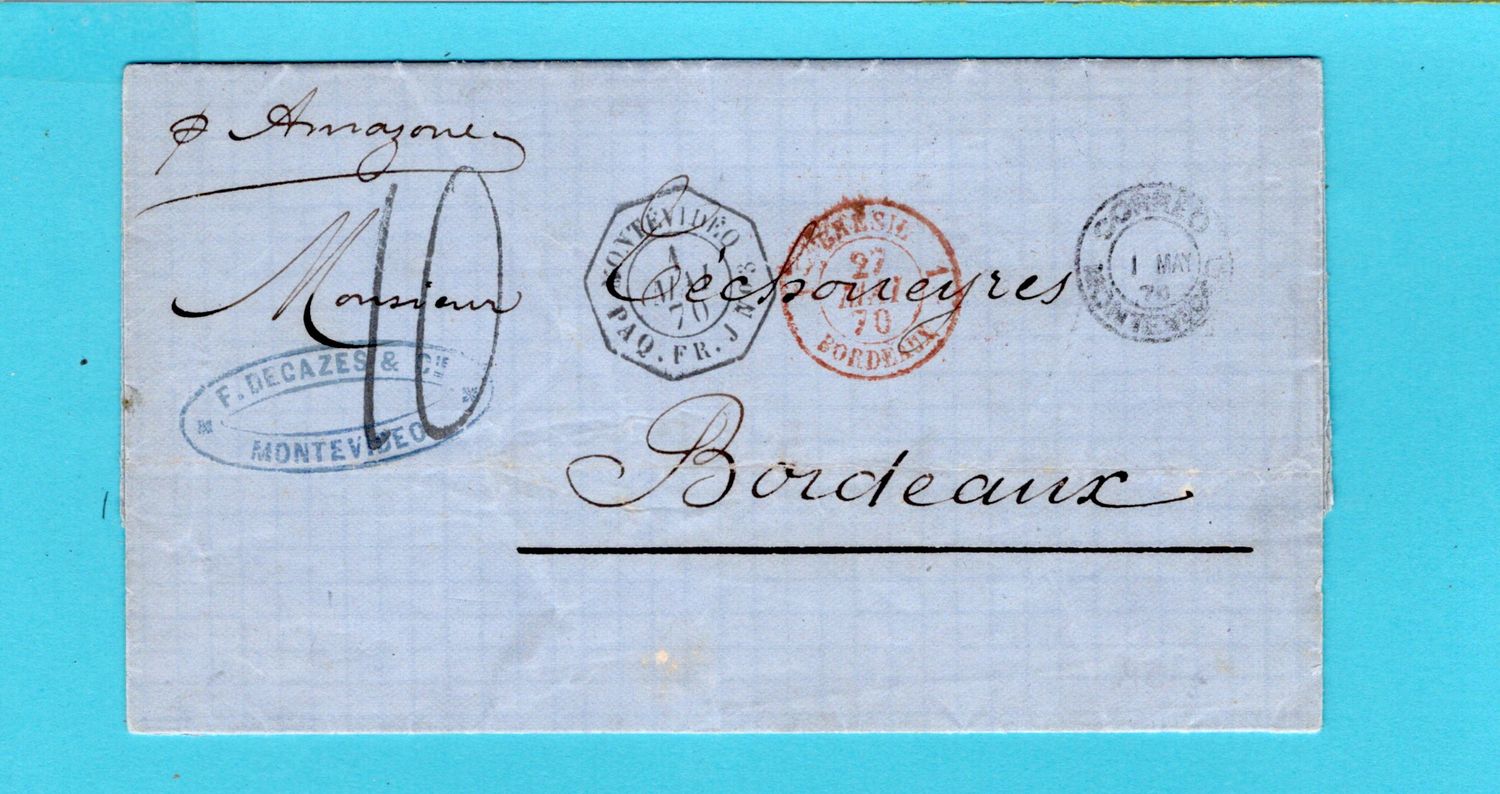 p Amazone
Monsieur Léchoueyres
Bordeaux
10
F. DECAZES & CIE
MONTEVIDEO
MONTÉVIDÉO
1
MAI
70
PAQ. FR. J Nº 3
BRÉSIL
27
MAI
70
BORDEAUX
CORREO
1 MAY
70
MONTEVIDEO